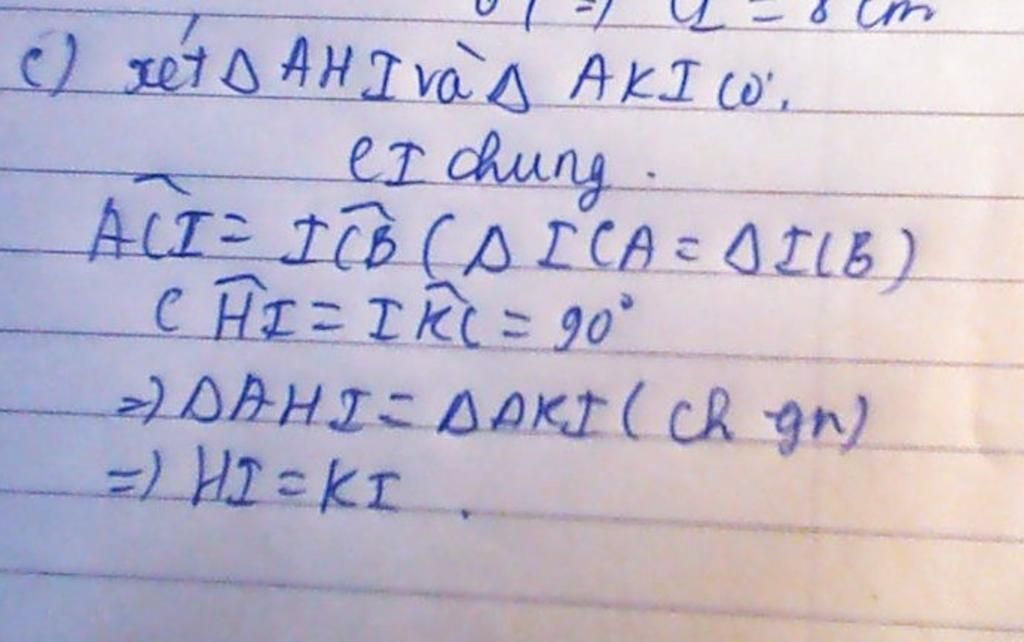 => CI = 8 cm
c) xét Δ AHI và Δ AKI có.
CI chung.
ACI = ICB (Δ ICA = ΔICB)
CHI = IKC = 90°
=> ΔAHI = ΔAKI (ch gn)
=> HI = KI.